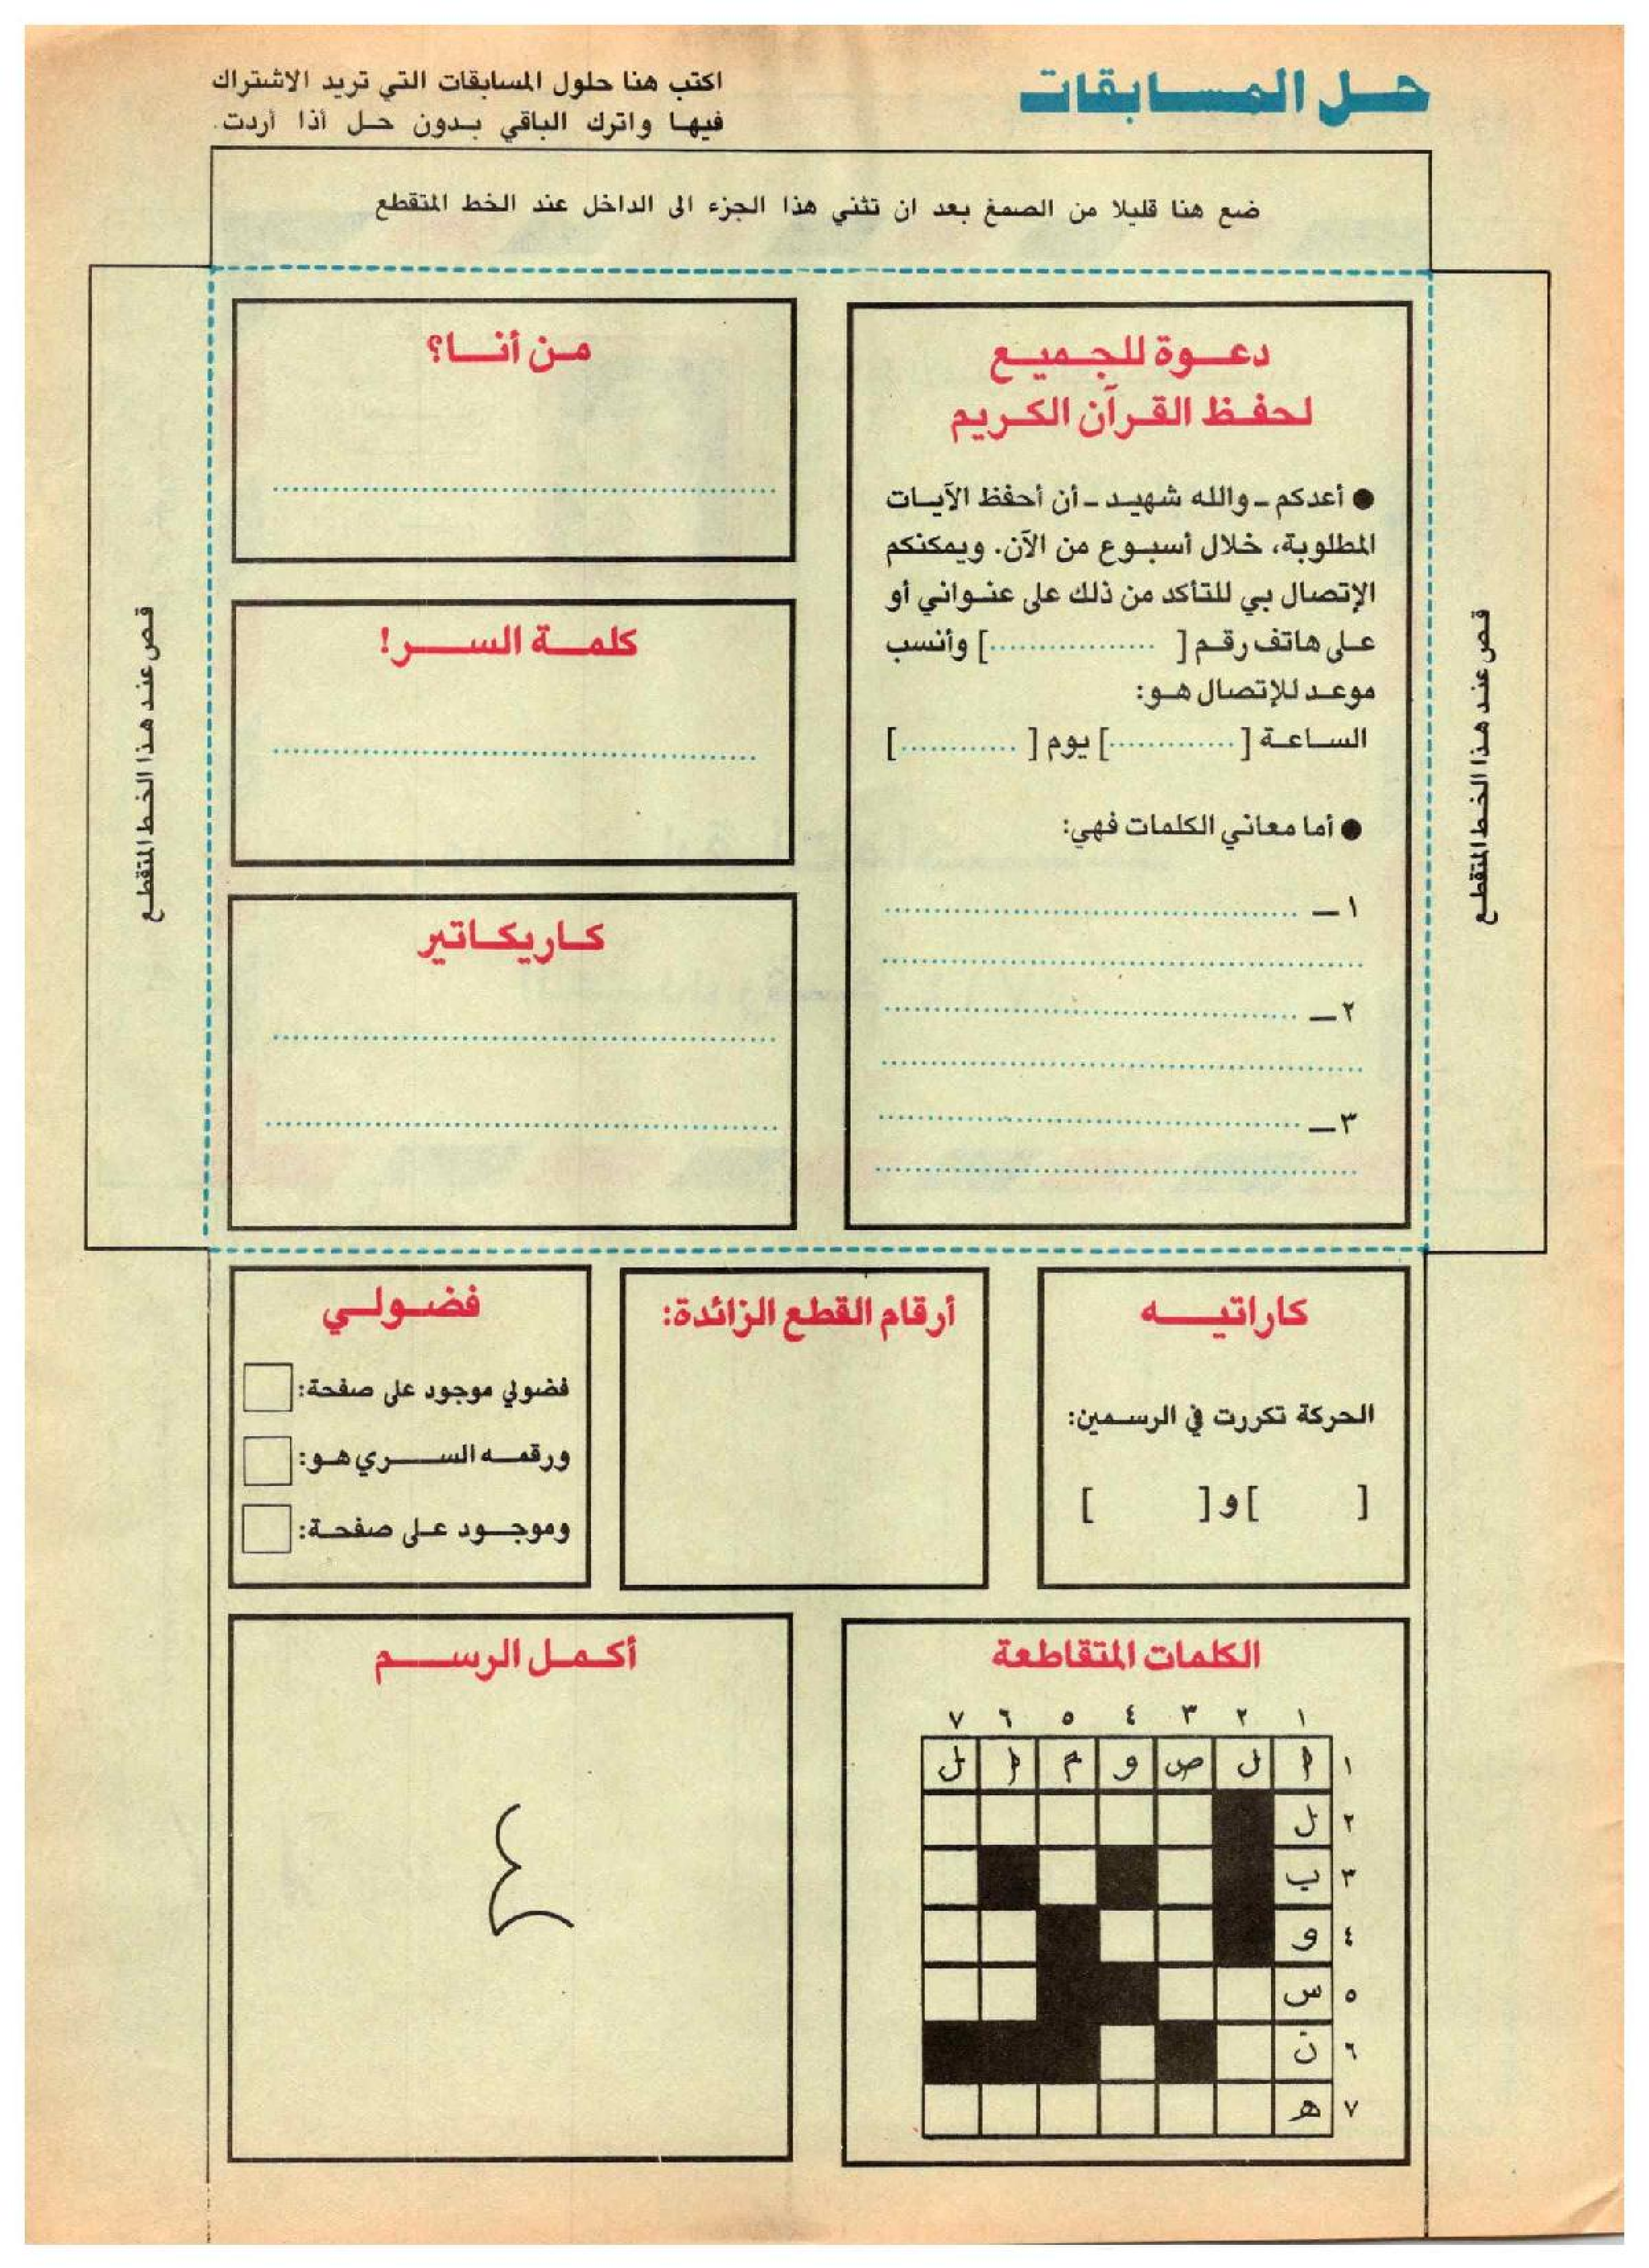 حل المسابقات
اكتب هنا حلول المسابقات التي تريد الاشتراك
فيها واترك الباقي بدون حل أذا أردت.
ضع هنا قليلا من الصمغ بعد ان تثني هذا الجزء الى الداخل عند الخط المتقطع
قص عند هذا الخط المتقطع
دعوة للجميع
لحفظ القرآن الكريم
● أعدكم - والله شهيد - أن أحفظ الآيات
المطلوبة، خلال أسبوع من الآن. ويمكنكم
الإتصال بي للتأكد من ذلك على عنواني أو
على هاتف رقم [ .................] وأنسب
موعد للإتصال هو:
الساعة [ .............] يوم [ ............]
● أما معاني الكلمات فهي:
١ -
٢ -
٣ -
من أنا؟
كلمة السر!
كاريكاتير
قص عند هذا الخط المتقطع
كاراتيه
الحركة تكررت في الرسمين:
[ ] و [ ]
أرقام القطع الزائدة:
فضولي
فضولي موجود على صفحة:
ورقمه السري هو:
وموجود على صفحة:
الكلمات المتقاطعة
١ ٢ ٣ ٤ ٥ ٦ ٧
١ ا ل ص و م ا ل
٢ ل
٣ ب
٤ و
٥ س
٦ ن
٧ ه
أكمل الرسم